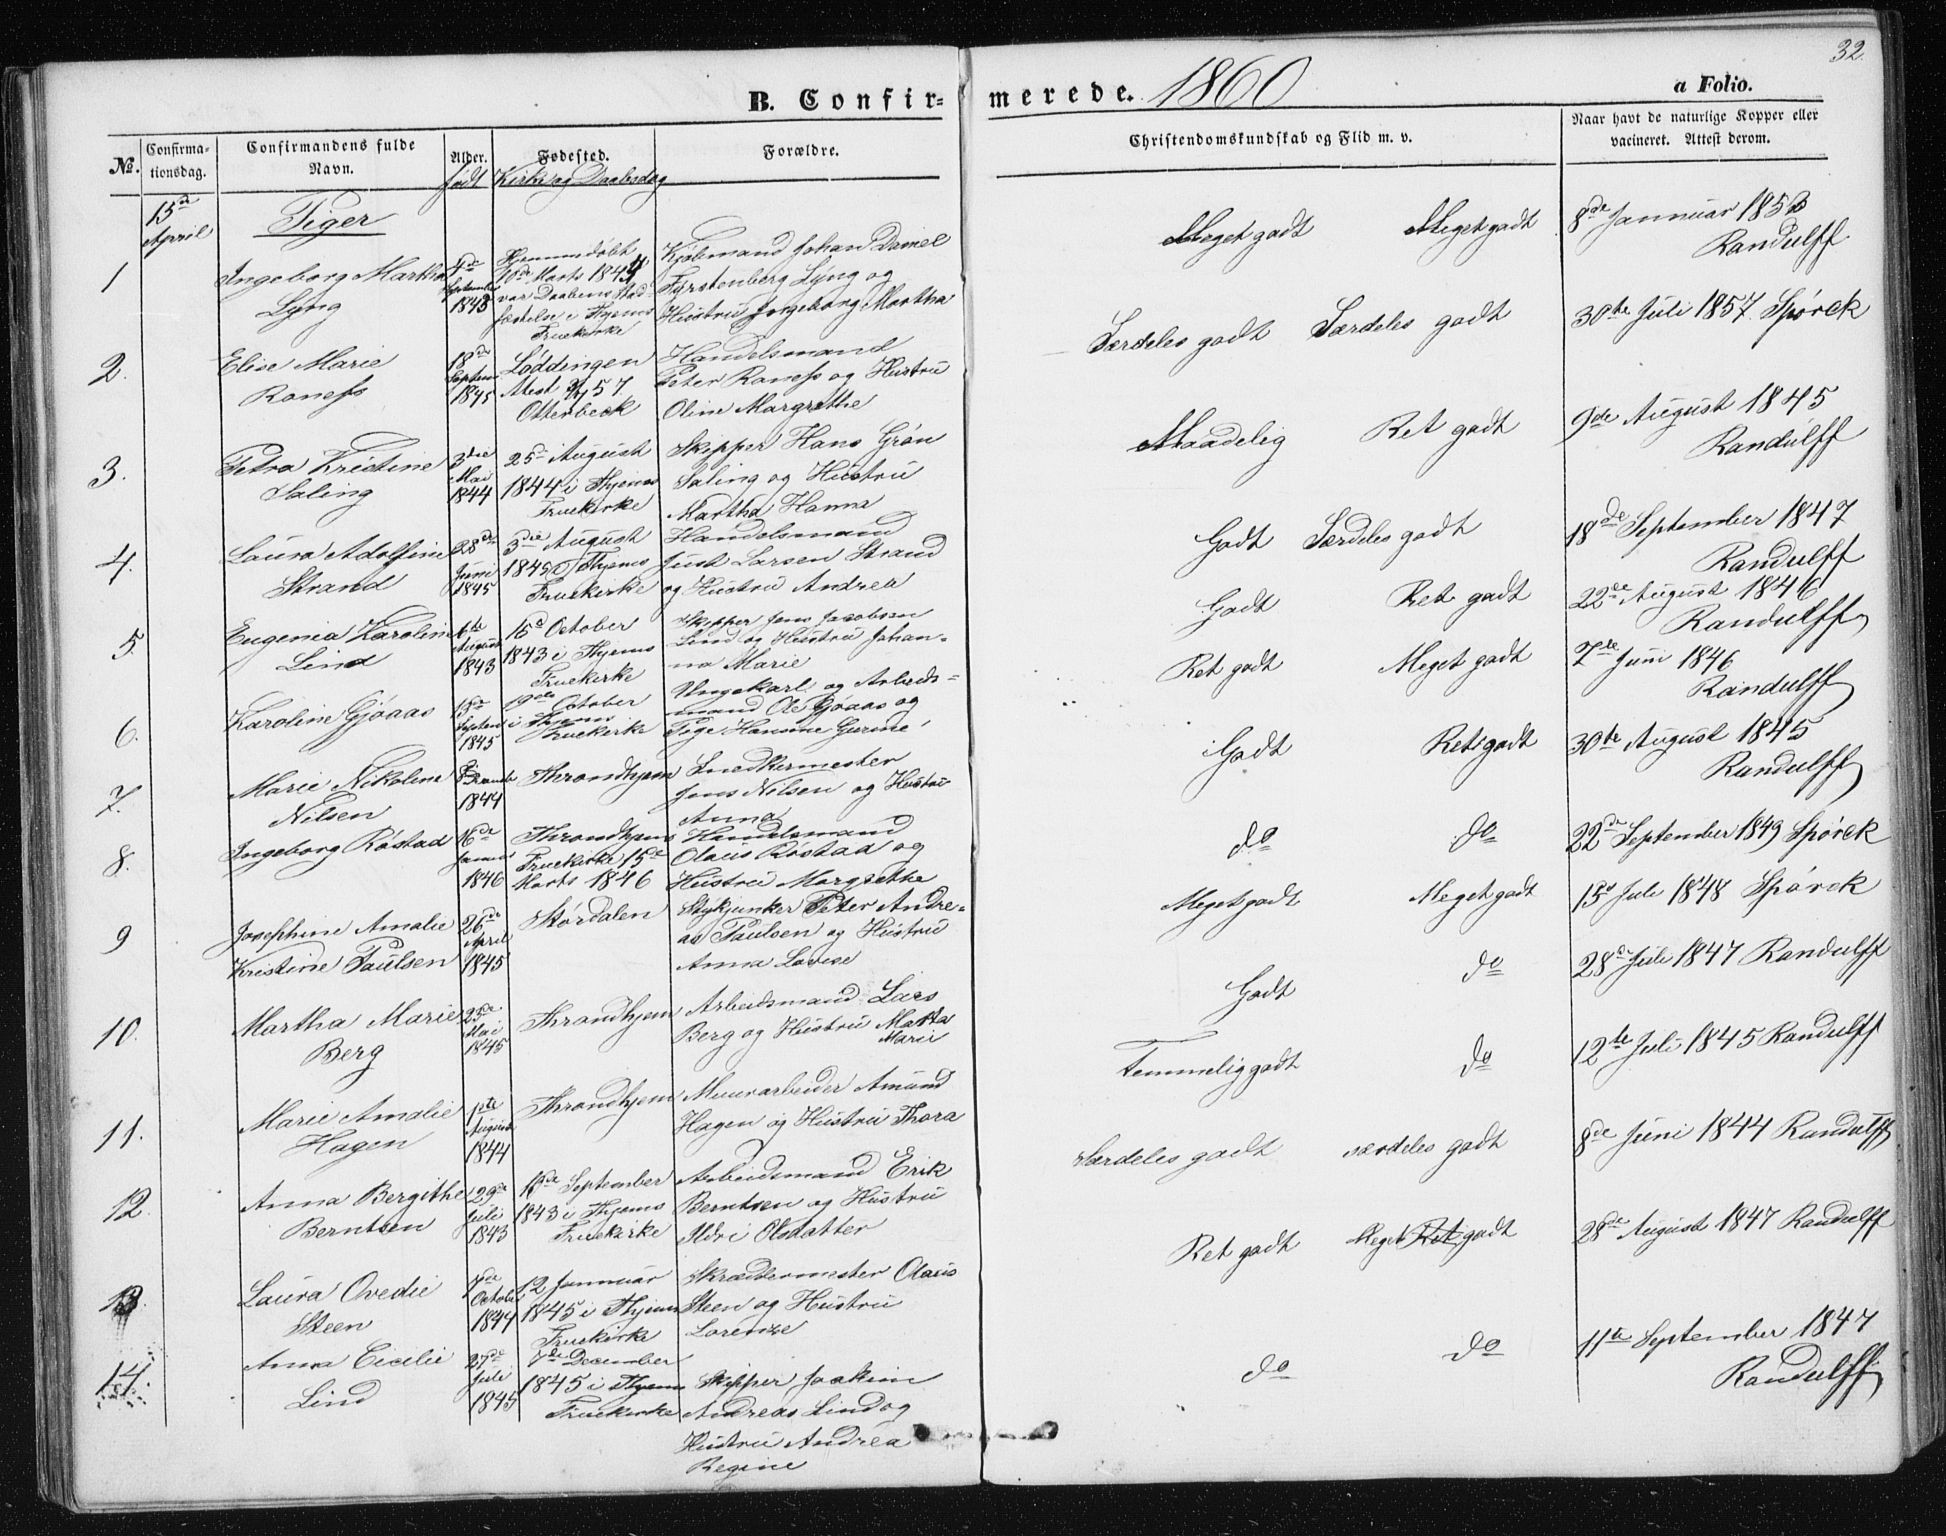 32
B. Confirmerede. 1860
a Folio.
No.
Confirmationsdag.
Confirmandens fulde Navn.
Alder.
født
Fødested.
Kirke og Daabsdag
Forældre.
Christendomskundskab og Flid m. v.
Naar havt de naturlige Kopper eller
vacineret. Attest derom.
15de
April
Piger
1
Ingeborg Martha
Lyng
September
1843
Hjemmedøbt
10de Marts 1844
var Daabens Stad-
fæstelse i Thjems
Fruekirke
Kjøbmand Johan Daniel
Fyrstenberg Lyng og
Hustru Ingeborg Martha
Meget godt
Meget godt
8de Januar 1853
Randulff
2.
Elise Marie
Raness
18de
Septem
1845
Løddingen
Otterbeck
Handelsmand
Peter Raness og Hustru
Oline Margrethe
Særdeles godt
Særdeles godt
30te Juli 1857 Spørck
3.
Petra Kristine
Saling
3die
Mai
1844
25de August
1844 i Thjems
Fruekirke
Skipper Hans Grøn
Saling og Hustru
Martha Hanna
Maadelig
Ret godt
9de August 1845
Randulff
4.
Laura Adolfine
Strand
28de
Juni
1845
3die August
1845 i Thjems
Fruekirke
Handelsmand
Just Larsen Strand
og Hustru Andrea
Godt
Særdeles godt
18de September 1847
Randulff
5.
Eugenia Karoline
Lind
6te
August
1843
15de October
1843 i Thjems
Fruekirke
Skipper Jens Jacobsen
Lind og Hustru Johan-
na Marie
Godt
Ret godt
22de August 1846
Randulff
6.
Karoline Gjøaas
1845
19de October
i Thjems
Fruekirke
Ungekarl og Arbeids-
mand Ole Gjøaas og
Pige Hansine
Ret godt
Meget godt
7de Juni 1846
Randulff
7.
Marie Nikoline
Nilsen
1844
Throndhjem
Snedkermester
Jens Nilsen og Hustru
Anna
Godt
Ret godt
30te August 1845
Randulff
8.
Ingeborg Røstad
16de
1846
Throndhjems
Fruekirke 15de
Marts 1846
Handelsmand
Olaus Røstad og
Hustru Margrethe
do
do
22de September 1849 Spørck
9
Josephine Amalie
Kristine Paulsen
26de
April
1845
Størdalen
Stykjunker Peter Andre-
as Paulsen og Hustru
Anna Lovise
Meget godt
Meget godt
15de Juli 1848 Spørck
10.
Martha Marie
Berg
23de
Mai
1845
Throndhjem
Arbeidsmand Lars
Berg og Hustru Marta
Marie
Godt
do
28de Juli 1847 Randulff
11.
Marie Amalie
Hagen
1ste
August
1844
Throndhjem
Muurarbeider Amund
Hagen og Hustru Thora
Temmelig godt
do
12te Juli 1845 Randulff
12
Anna Bergithe
Berntsen
29de
Juli
1843
September
1843 i Thjems
Fruekirke
Arbeidsmand Erik
Berntsen og Hustru
Ildri Olsdatter
særdeles godt
særdeles godt
8de Juni 1844 Randulff
13.
Laura Ovedie
Steen
7de
October
1844
12 Januar
1845 i Thjems
Fruekirke
Skrædermester Olaus
Steen og Hustru
Lorenze
Ret godt
Meget Ret godt
28de August 1847 Randulff
14.
Anna Cicilie
Lind
27de
Juli
1845
7de December
1845 i Thjems
Fruekirke
Skipper Joakim
Andreas Lind og
Hustru Andrea
Regine
do
do
11te September 1847
Randulff